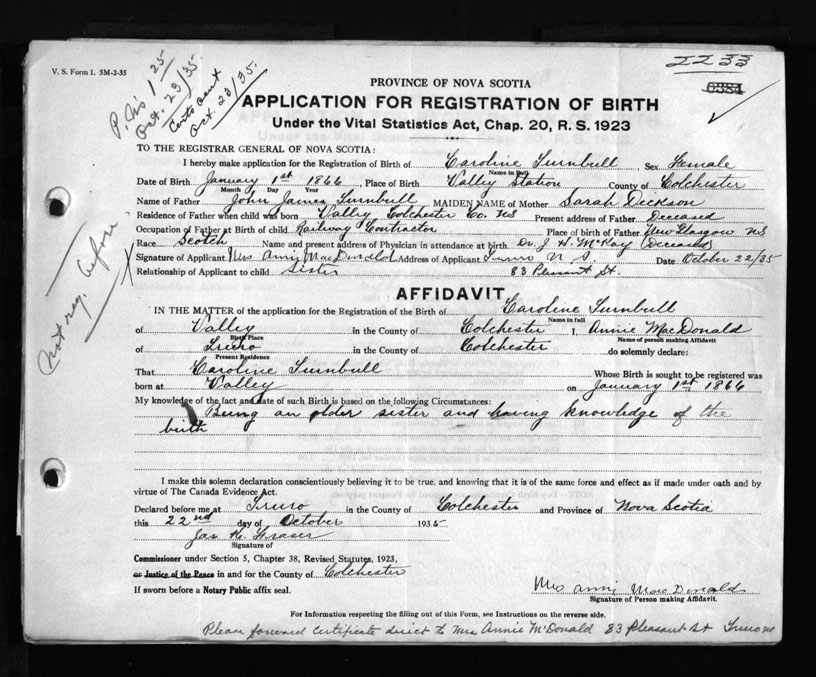 V. S. Form 1. 5M-2-35
P. No 1 25
Oct. 23/35
Certs sent
Oct. 23/35.
2233
PROVINCE OF NOVA SCOTIA
APPLICATION FOR REGISTRATION OF BIRTH
Under the Vital Statistics Act, Chap. 20, R. S. 1923
TO THE REGISTRAR GENERAL OF NOVA SCOTIA:
I hereby make application for the Registration of Birth of Caroline Turnbull Sex Female
Name in Full
Date of Birth January 1st 1866, Place of Birth Valley Station County of Colchester
Month Day Year
Name of Father John James Turnbull MAIDEN NAME of Mother Sarah Dickson
Residence of Father when child was born Valley Colchester Co. NS Present address of Father Deceased
Occupation of Father at Birth of child Railway Contractor Place of birth of Father New Glasgow NS
Race Scotch Name and present address of Physician in attendance at birth Dr. J. H. McKay (Deceased)
Signature of Applicant Mrs Annie MacDonald Address of Applicant Truro N S. Date October 22/35
Relationship of Applicant to child sister 83 Pleasant St.
Not reg. before
AFFIDAVIT
IN THE MATTER of the application for the Registration of the Birth of Caroline Turnbull
Name in full
of Valley in the County of Colchester I, Annie MacDonald
Birth Place Name of person making Affidavit
of Truro in the County of Colchester do solemnly declare:
Present Residence
That Caroline Turnbull Whose Birth is sought to be registered was
born at Valley on January 1st 1866
My knowledge of the fact and date of such Birth is based on the following Circumstances:
Being an older sister and having knowledge of the
birth
I make this solemn declaration conscientiously believing it to be true, and knowing that it is of the same force and effect as if made under oath and by
virtue of The Canada Evidence Act.
Declared before me at Truro in the County of Colchester and Province of Nova Scotia
this 22nd day of October 1935
Jas K. Fraser
Signature of
Commissioner under Section 5, Chapter 38, Revised Statutes, 1923,
or Justice of the Peace in and for the County of Colchester
If sworn before a Notary Public affix seal.
Mrs Annie MacDonald
Signature of Person making Affidavit.
For Information respecting the filling out of this Form, see Instructions on the reverse side.
Please forward certificate direct to Mrs Annie McDonald 83 Pleasant St Truro NS